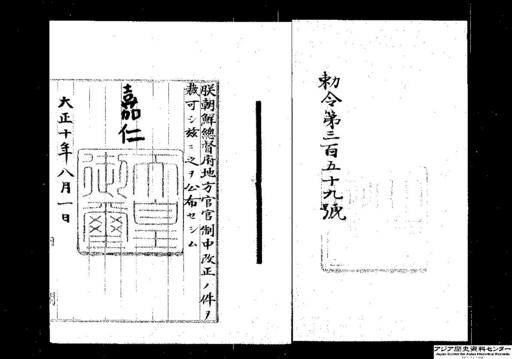 勅令第三百五十九號
朕朝鮮總督府地方官官制中改正ノ件ヲ
裁可シ玆ニ之ヲ公布セシム
嘉仁
天皇御璽
大正十年八月一日
アジア歴史資料センター
Japan Center for Asian Historical Records